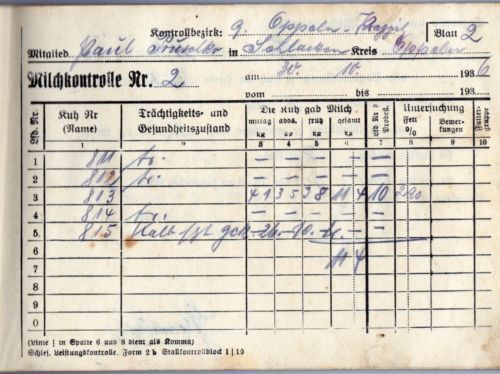 Kontrollbezirk: 9 Oppeln - Blatt 2
Mitglied Paul in Kreis Oppeln
Milchkontrolle Nr. 2 am 30. 10. 1936
vom bis 193
Lfd. Nr. Kuh Nr (Name) Trächtigkeits- und Gesundheitszustand Die Kuh gab Milch: mittag kg abds. kg früh kg gesamt kg Lfd Nr d Probefl. Untersuchung Fett % Bemerkungen Futtergruppe
1 2 3 4 5 6 7 8 9 10
1 811 tr. — — — — — —
2 812 tr. — — — — — —
3 813 4 1 3 5 3 8 11 4 10 290
4 814 tr. — — — — — —
5 815 Kalb 26. 10. — —
6 11 4
7
8
9
0
(Linie ⁞ in Spalte 6 und 8 dient als Komma)
Schles. Leistungskontrolle. Form 2 b Stallkontrollblock 1|10